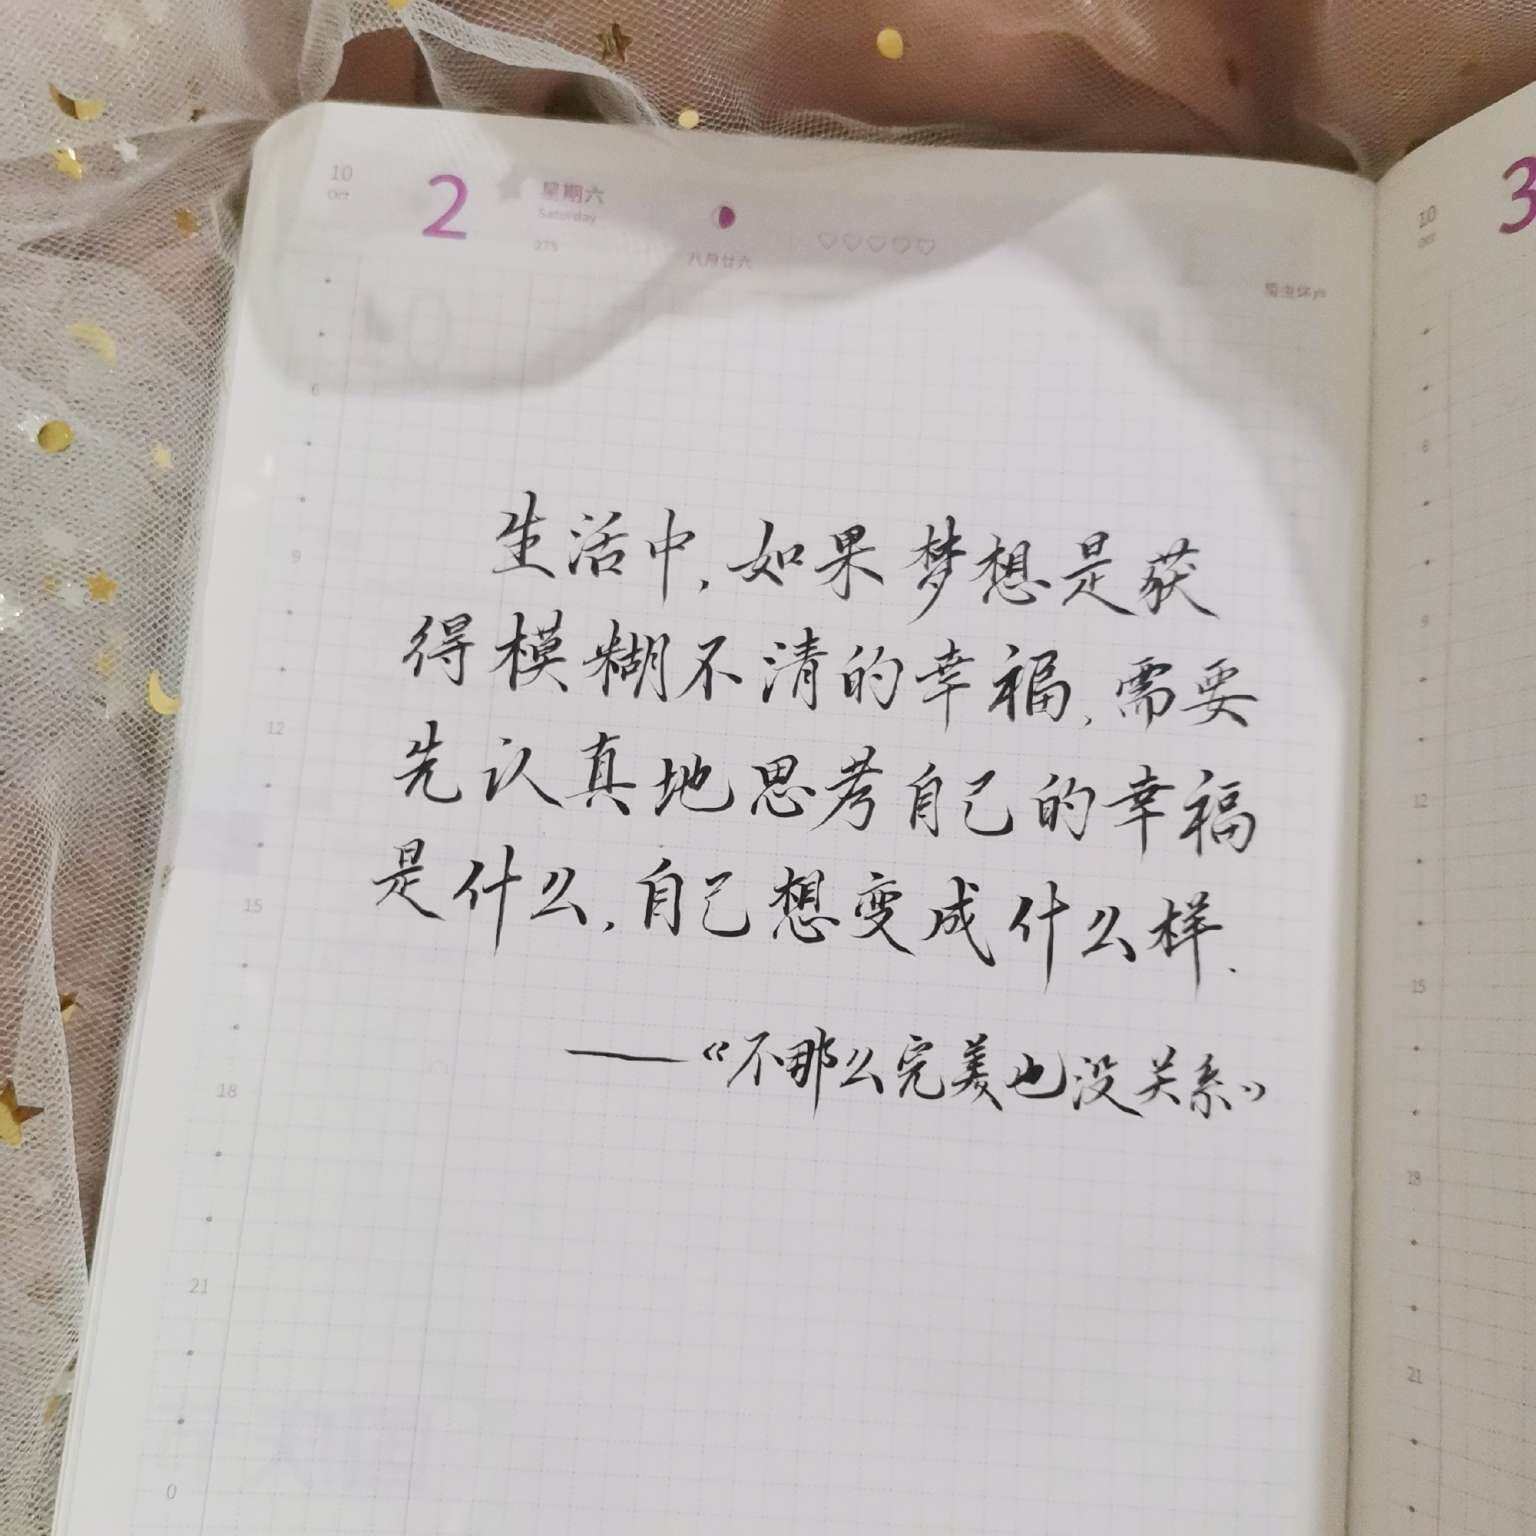 10 2 星期六
Oct Saturday
275 八月廿六
生活中，如果梦想是获
得模糊不清的幸福，需要
先认真地思考自己的幸福
是什么，自己想变成什么样.
——《不那么完美也没关系》
6
9
12
15
18
21
0
10 3
Oct
6
9
12
15
18
21